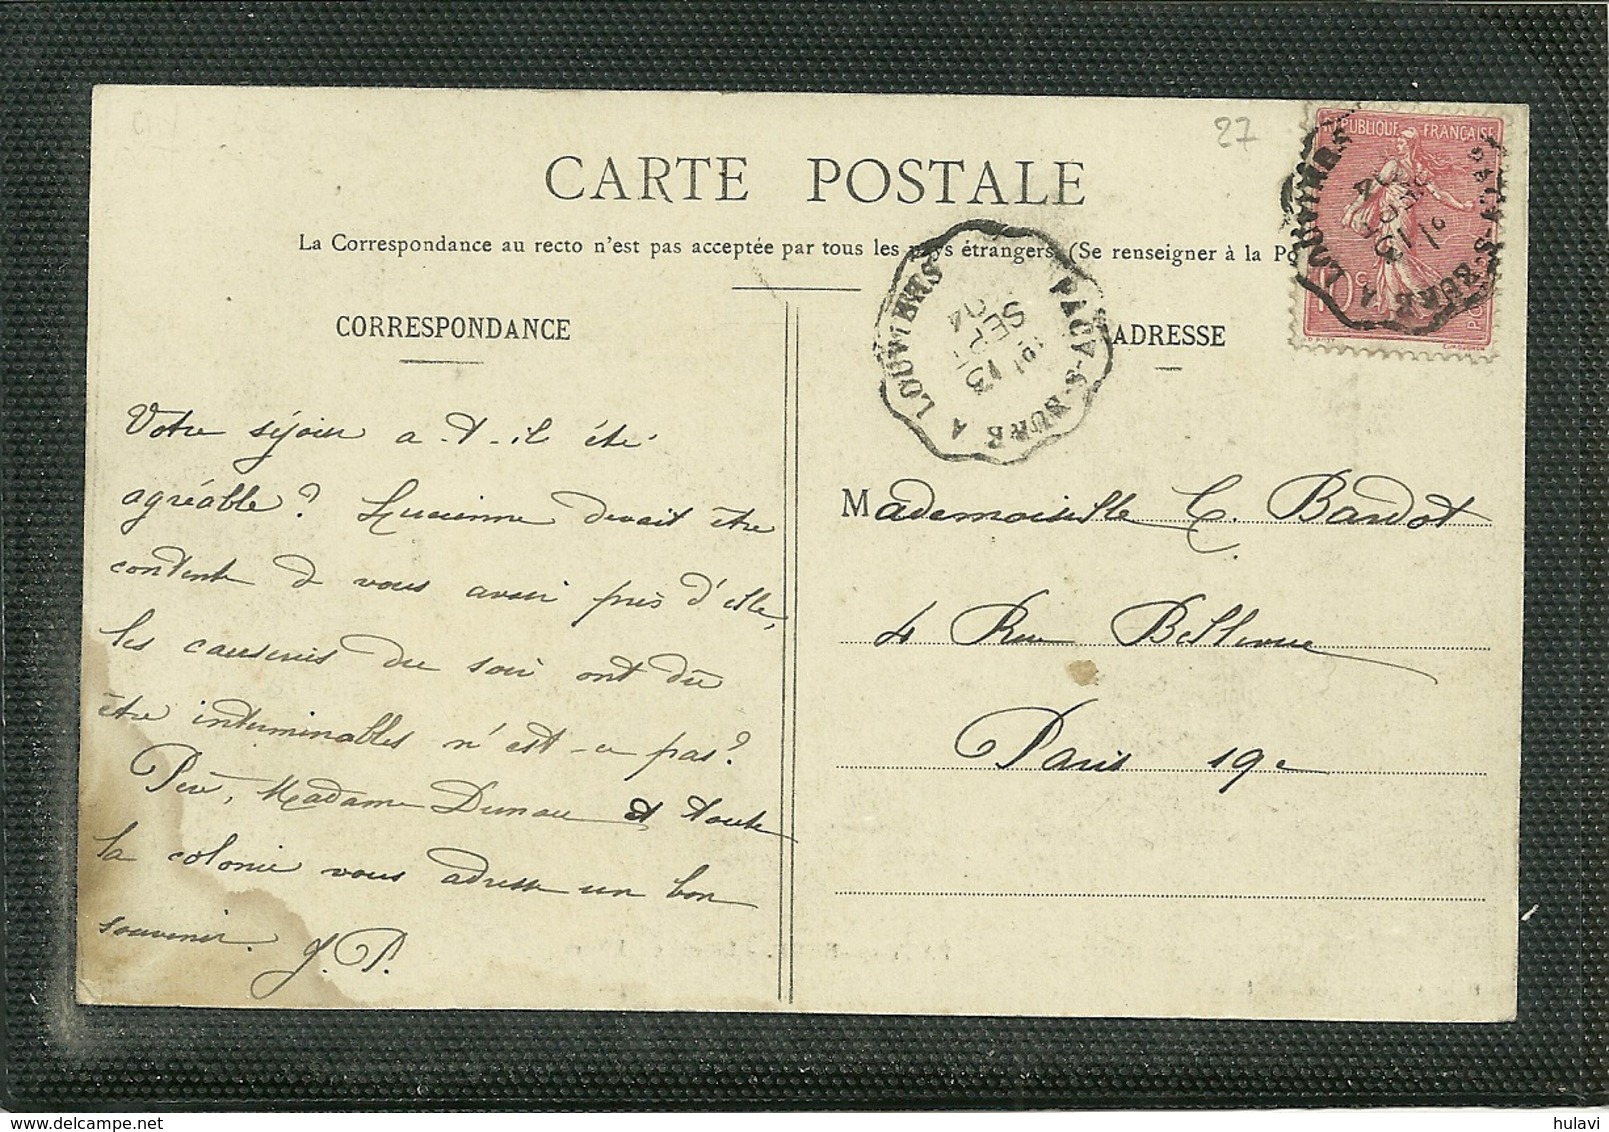 27
CARTE POSTALE
La Correspondance au recto n'est pas acceptée par tous les pays étrangers (Se renseigner à la Po
CORRESPONDANCE
ADRESSE
RÉPUBLIQUE FRANÇAISE
PACY-S-EURE A LOUVIERS
13
SEPT
04
PACY-S-EURE A LOUVIERS
Votre séjour a-t-il été
agréable? Lucienne devait être
contente de vous avoir près d'elle,
les causeries du soir ont dû
être interminables n'est-ce pas?
Père, Madame Dunau et toute
la colonie vous adresse un bon
souvenir. J.P.
Mademoiselle C. Bardot
4 Rue Bellevue
Paris 19e
hulavi